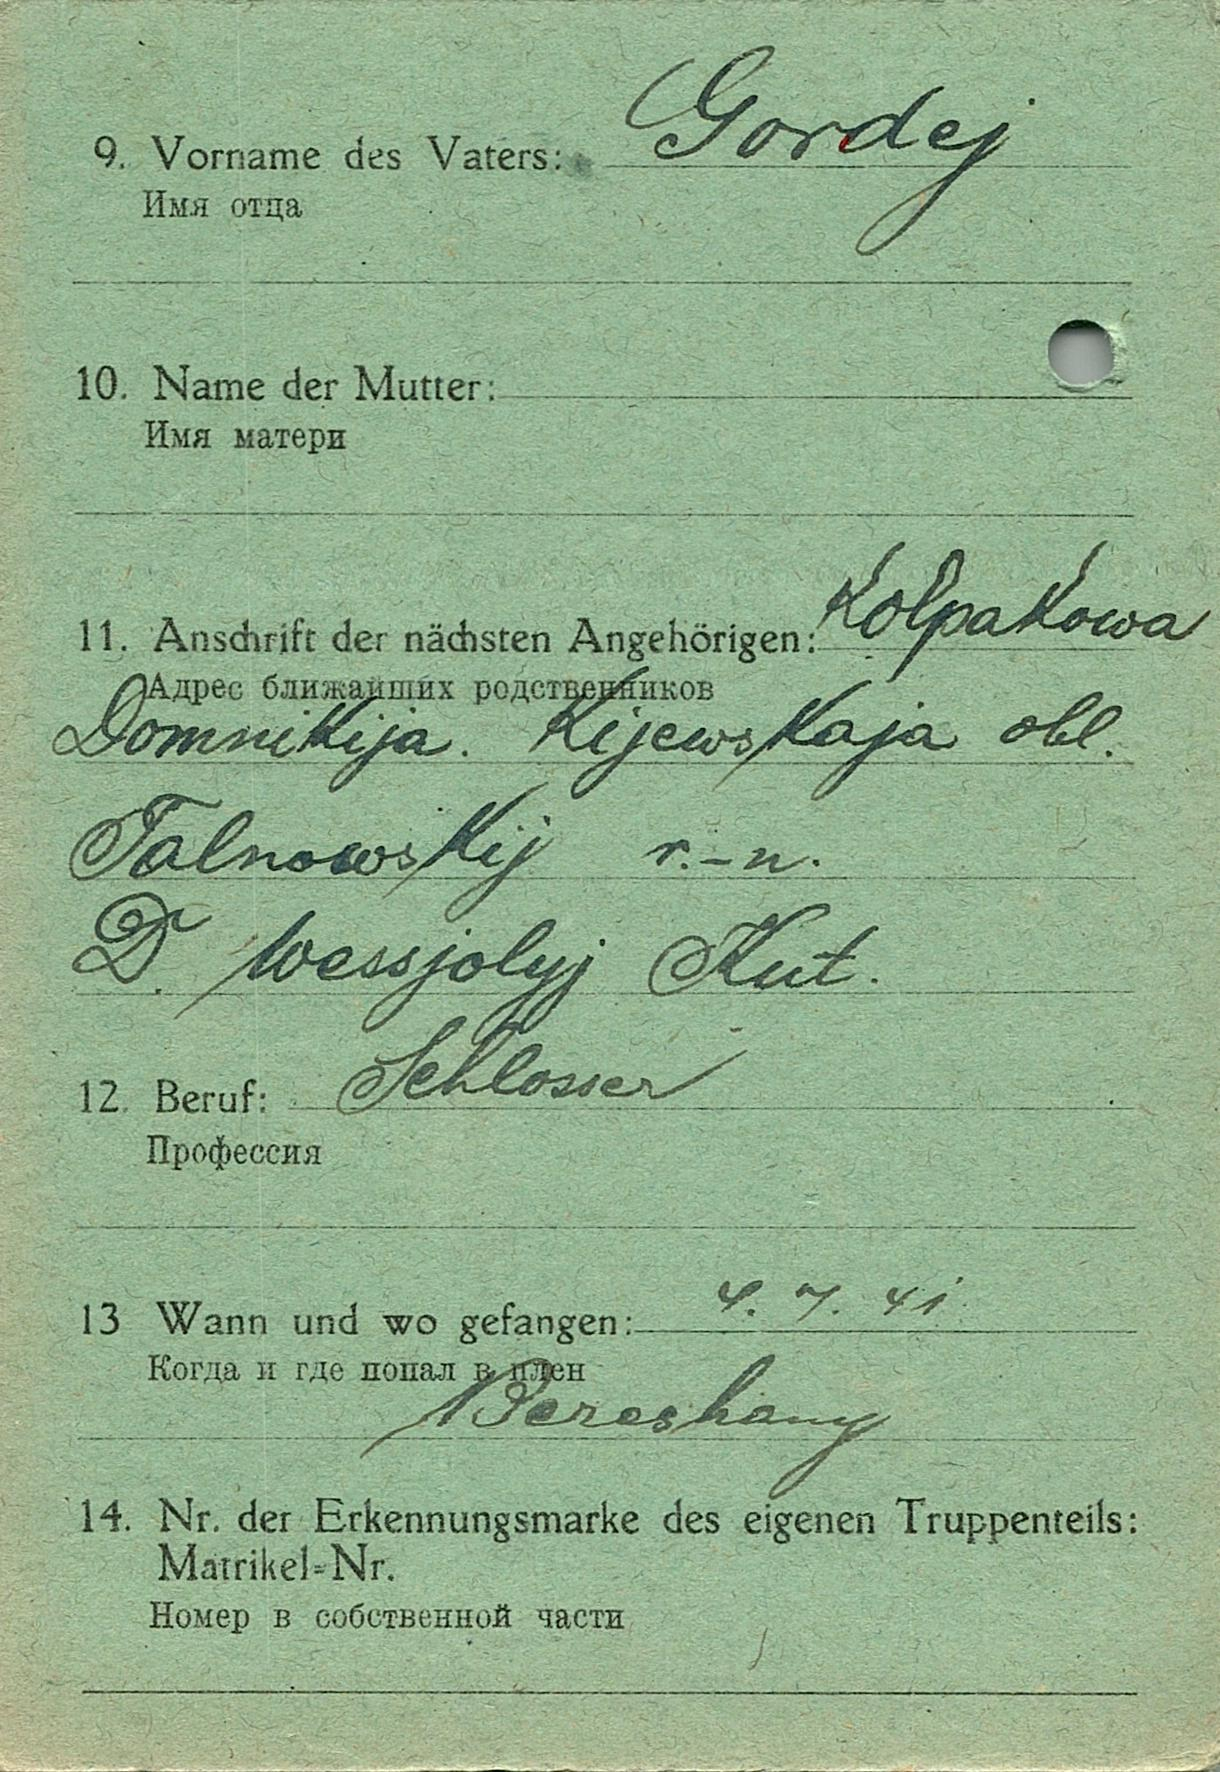 9. Vorname des Vaters: Gordej
Имя отца
10. Name der Mutter:
Имя матери
11. Anschrift der nächsten Angehörigen: Kolpakowa
Адрес ближайших родственников
Domnikija. Kijewskaja obl.
Talnowskij r.-n.
D. Wessjolyj Kut.
12. Beruf: Schlosser
Профессия
13 Wann und wo gefangen: 4. 7. 41
Когда и где попал в плен
Bereshany
14. Nr. der Erkennungsmarke des eigenen Truppenteils:
Matrikel=Nr.
Номер в собственной части